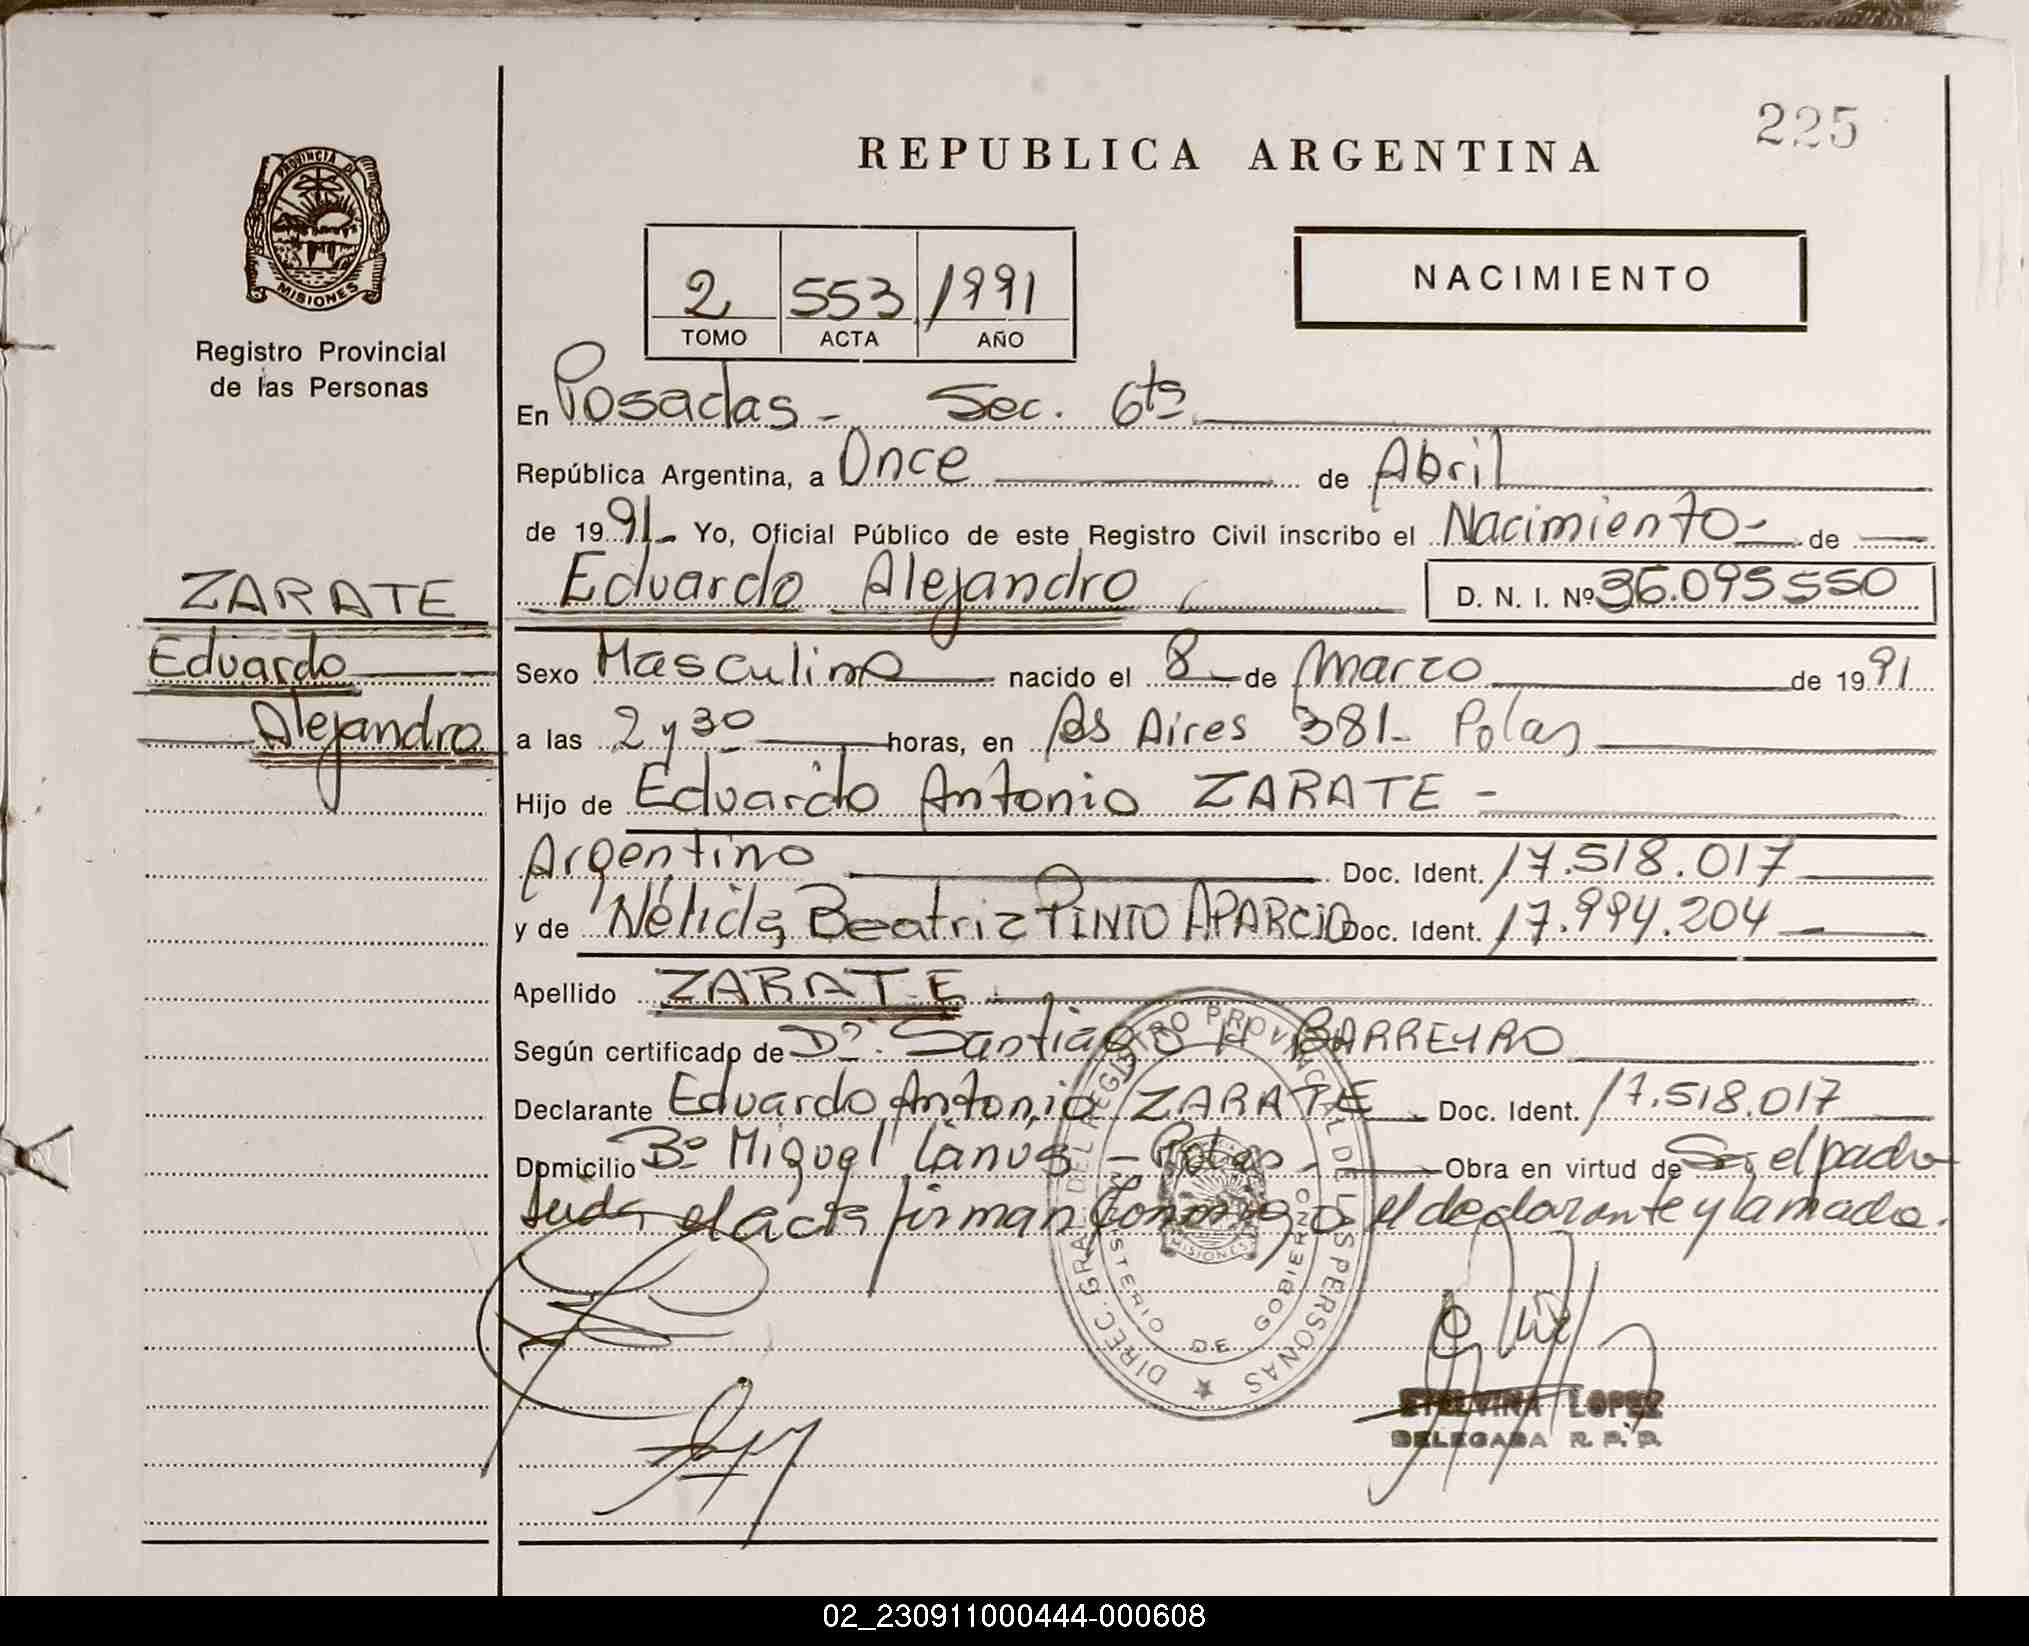 225
REPUBLICA ARGENTINA
PROVINCIA DE
MISIONES
Registro Provincial
de las Personas
2 553 1991
TOMO ACTA AÑO
NACIMIENTO
En Posadas - Sec. 6ta
República Argentina, a Once de Abril
de 1991- Yo, Oficial Público de este Registro Civil inscribo el Nacimiento - de
Eduardo Alejandro D. N. I. Nº 36.095550
ZARATE
Eduardo
Alejandro
Sexo Masculino nacido el 8 de Marzo de 1991
a las 2 y 30 horas, en Bs Aires 381- Pdas
Hijo de Eduardo Antonio ZARATE -
Argentino Doc. Ident. 17.518.017
y de Nélida Beatriz PINTO APARCIO Doc. Ident. 17.994.204
Apellido ZARATE
Según certificado de Dr. Santiago H BARREYRO
Declarante Eduardo Antonio ZARATE Doc. Ident. 17.518.017
Domicilio Bº Miguel Lanús - Pdas - Obra en virtud de Ser el padre
Leida el acta firman conmigo el declarante y la madre.
DIREC. GRAL. DEL REGISTRO PROVINCIAL DE LAS PERSONAS
MINISTERIO DE GOBIERNO
MISIONES
ETELVINA LOPEZ
DELEGADA R. P. P.
02_230911000444-000608